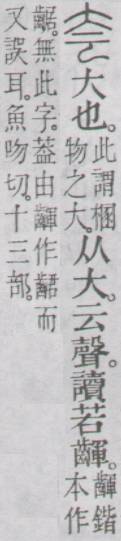 夽大也。
此謂梱
物之大。
从大。云聲。讀若齳。
齳鍇
本作
無此字。葢由齳作齫而
又誤耳。魚吻切。十三部。